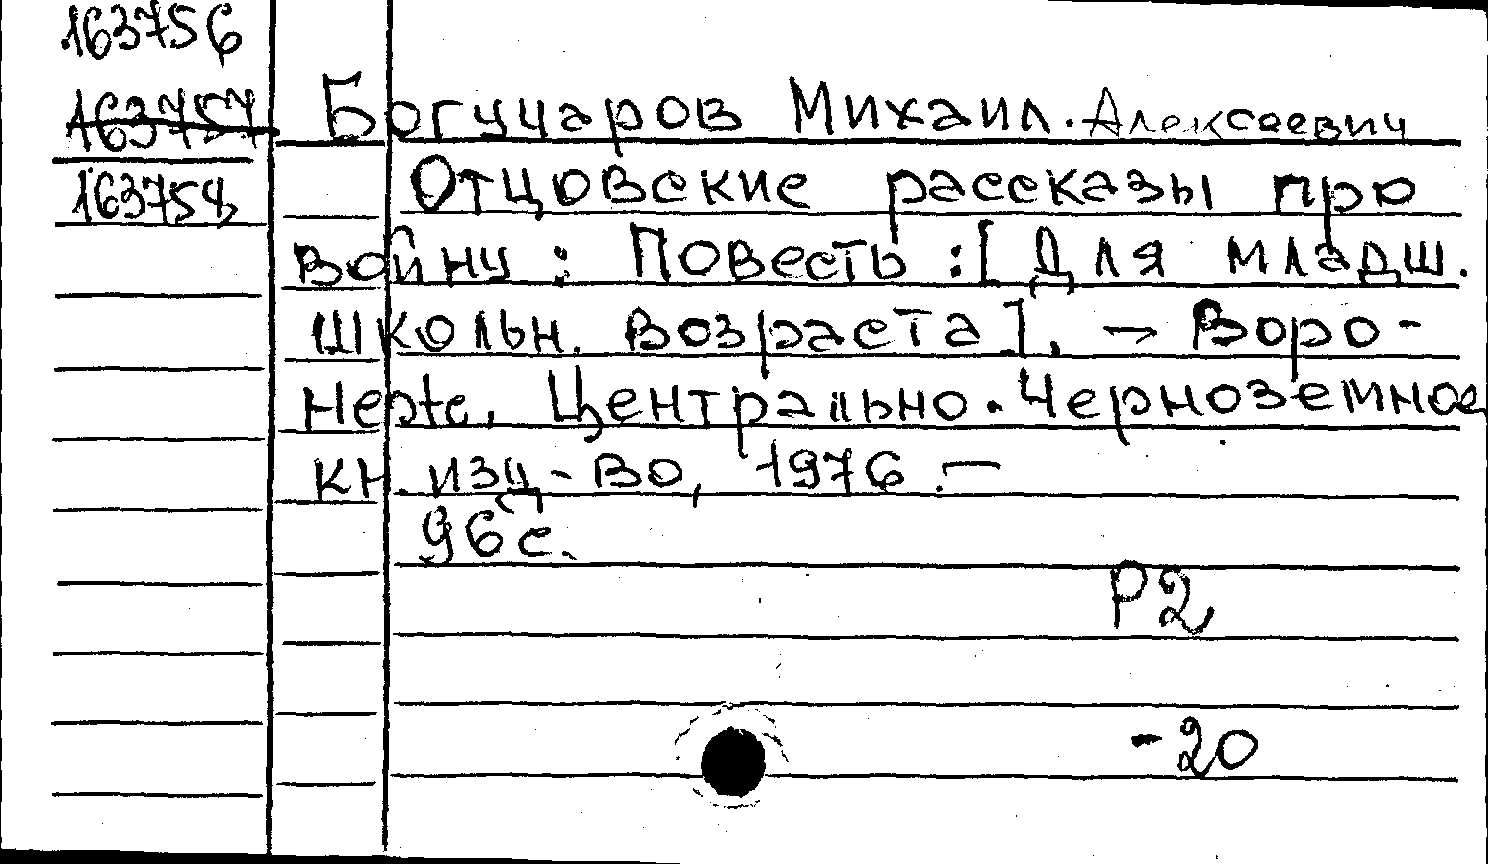 163756
163757
163758
Богучаров Михаил. Алексеевич
Отцовские рассказы про
войну : Повесть : [Для младш.
школьн. возраста]. — Воро-
неж, Центрально-Черноземное
кн. изд-во, 1976. —
96 с.
Р2
-20